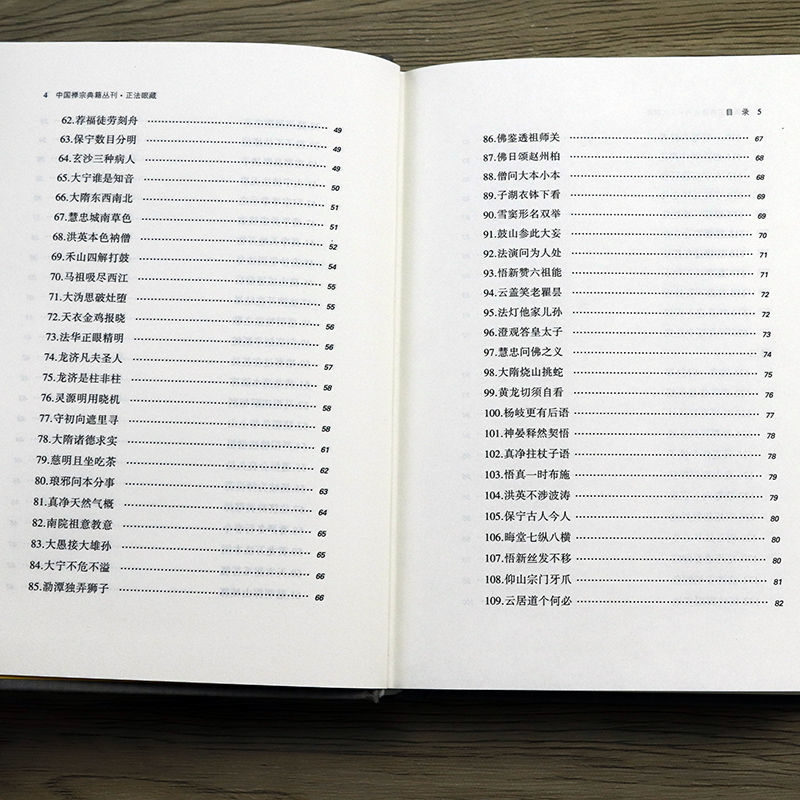 4 中国禅宗典籍丛刊·正法眼藏
62.荐福徒劳刻舟 49
63.保宁数目分明 49
64.玄沙三种病人 49
65.大宁谁是知音 50
66.大隋东西南北 51
67.慧忠城南草色 51
68.洪英本色衲僧 52
69.禾山四解打鼓 54
70.马祖吸尽西江 55
71.大沩思破灶堕 55
72.天衣金鸡报晓 56
73.法华正眼精明 56
74.龙济凡夫圣人 57
75.龙济是柱非柱 58
76.灵源明用晓机 58
77.守初向遮里寻 58
78.大隋诸德求实 61
79.慈明且坐吃茶 62
80.琅邪问本分事 63
81.真净天然气概 64
82.南院祖意教意 65
83.大愚接大雄孙 65
84.大宁不危不溢 66
85.泐潭独弄狮子 66
目 录 5
86.佛鉴透祖师关 67
87.佛日颂赵州柏 68
88.僧问大本小本 68
89.子湖衣钵下看 69
90.雪窦形名双举 69
91.鼓山参此大妄 70
92.法演问为人处 71
93.悟新赞六祖能 71
94.云盖笑老瞿昙 72
95.法灯他家儿孙 72
96.澄观答皇太子 73
97.慧忠问佛之义 74
98.大隋烧山挑蛇 75
99.黄龙切须自看 76
100.杨岐更有后语 77
101.神晏释然契悟 78
102.真净拄杖子语 78
103.悟真一时布施 79
104.洪英不涉波涛 79
105.保宁古人今人 80
106.晦堂七纵八横 80
107.悟新丝发不移 80
108.仰山宗门牙爪 81
109.云居道个何必 82